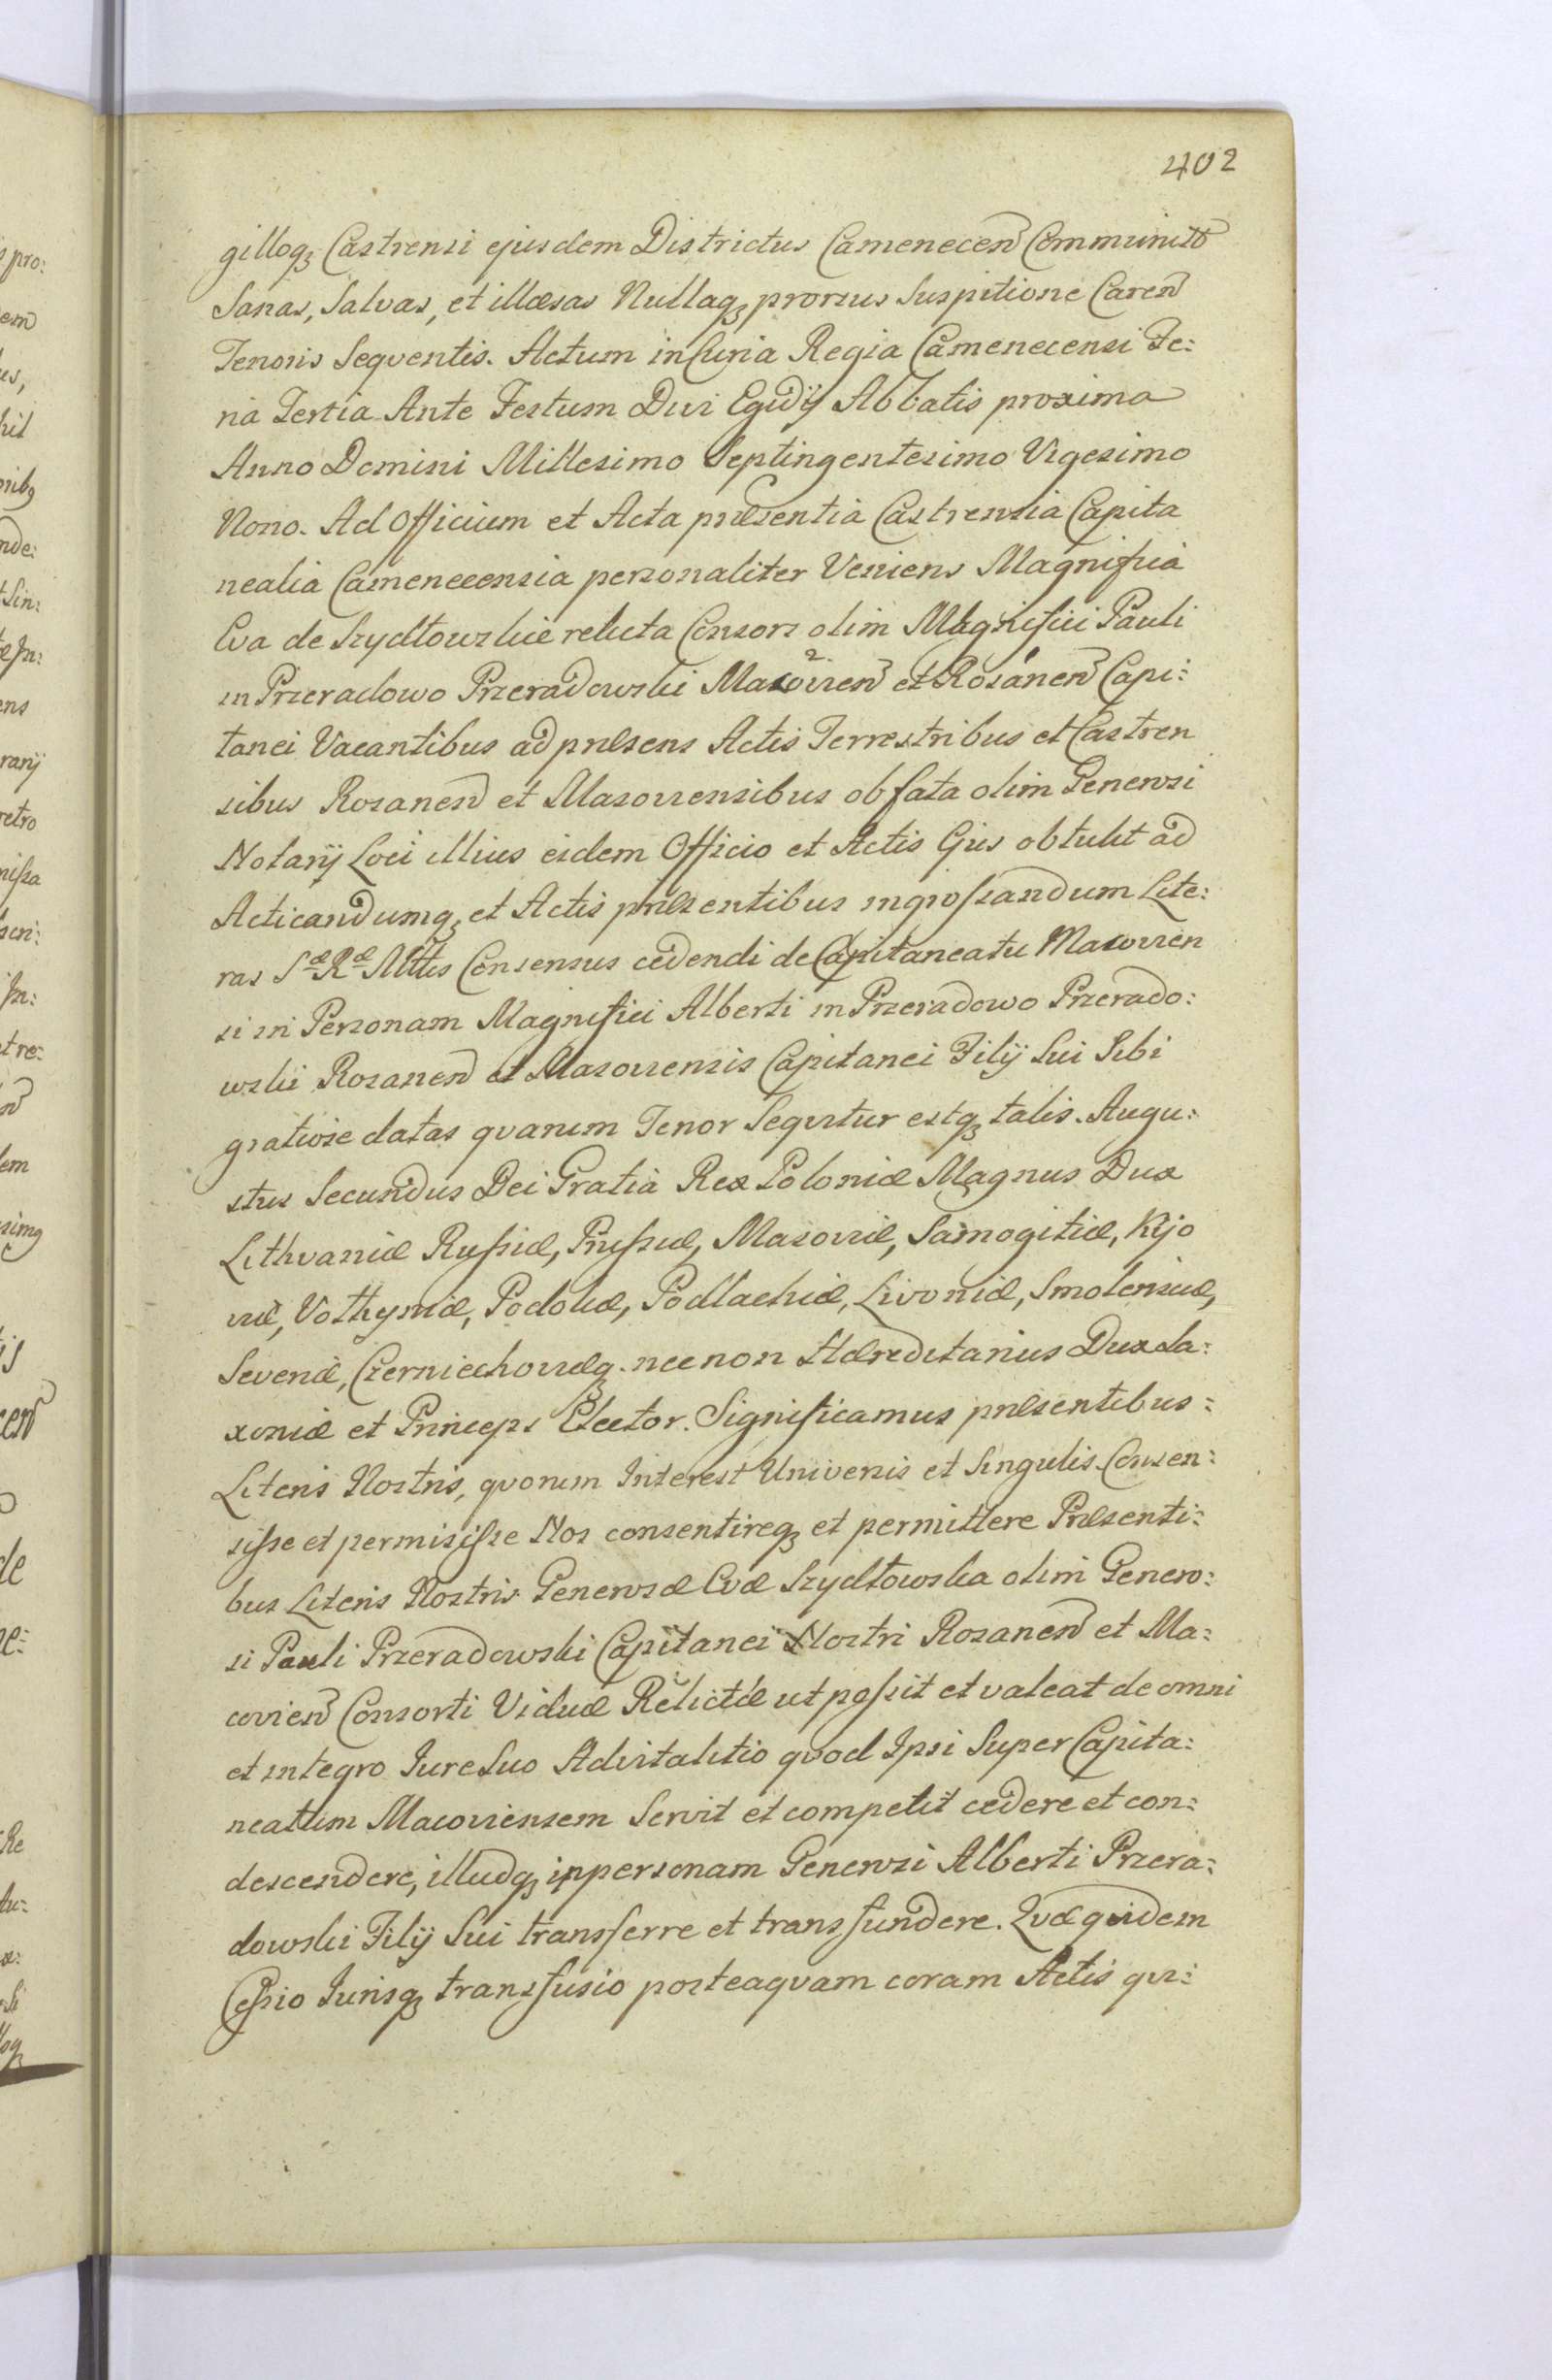 402
gilloq₃ Castrensi ejusdem Districtus Camenecen̄ Communitō
Sanas, Salvas, et illæsas Nullaq₃ prorsus Suspitione Caren̄
Tenoris Seqventis. Actum in Curia Regia Camenecensi Fe:
ria Tertia Ante Festum Divi Egidÿ Abbatis proxima
Anno Domini Millesimo Septingentesimo Vigesimo
Nono. Ad Officium et Acta præsentia Castrensia Capita
nealia Camenecensia personaliter Veniens Magnifica
Eva de Szydłowskie relicta Consors olim Magnifici Pauli
in Przeradowo Przeradowski Macovien̄ et Rosanen̄ Capi:
tanei Vacantibus ad præsens Actis Terrestribus et Castren
sibus Rosanen̄ et Masoviensibus ob fata olim Generosi
Notarÿ Loci illius eidem Officio et Actis Ejus obtulit ad
Acticandumq₃ et Actis præsentibus ingrossandum Lite:
ras Sæ Ræ Mttis Consensus cedendi de Capitaneatu Macovien
si in Personam Magnifici Alberti in Przeradowo Przerado:
wski Rosanen̄ et Masoviensis Capitanei Filÿ Sui Sibi
gratiose datas qvarum Tenor Seqvitur estq₃ talis. Augu:
stus Secundus Dei Gratia Rex Poloniæ Magnus Dux
Lithvaniæ Russiæ, Prussiæ, Masoviæ, Samogitiæ, Kijo
viæ, Vołhyniæ, Podoliæ, Podlachiæ, Livoniæ, Smolensciæ,
Severiæ, Czerniechoviæq. necnon Hæreditarius Dux Sa:
xoniæ et Princeps Elector. Significamus præsentibus:
Literis Nostris, qvorum Interest Universis et Singulis. Consen:
sisse et permisisse Nos consentireq₃ et permittere Præsenti:
bus Literis Nostris Generosæ Evæ Szydłowska olim Genero:
si Pauli Przeradowski Capitanei Nostri Rosanen̄ et Ma:
covien̄ Consorti Viduæ Relictæ ut possit et valeat de omni
et integro Iure Suo Advitalitio qvod Ipsi Super Capita:
neatum Macoviensem Servit et competit cedere et con:
descendere, illudq₃ in personam Generosi Alberti Przera:
dowski Filÿ Sui transferre et transfundere. Qvæ qvidem
Cessio Iurisq₃ transfusio posteaqvam coram Actis qvi: